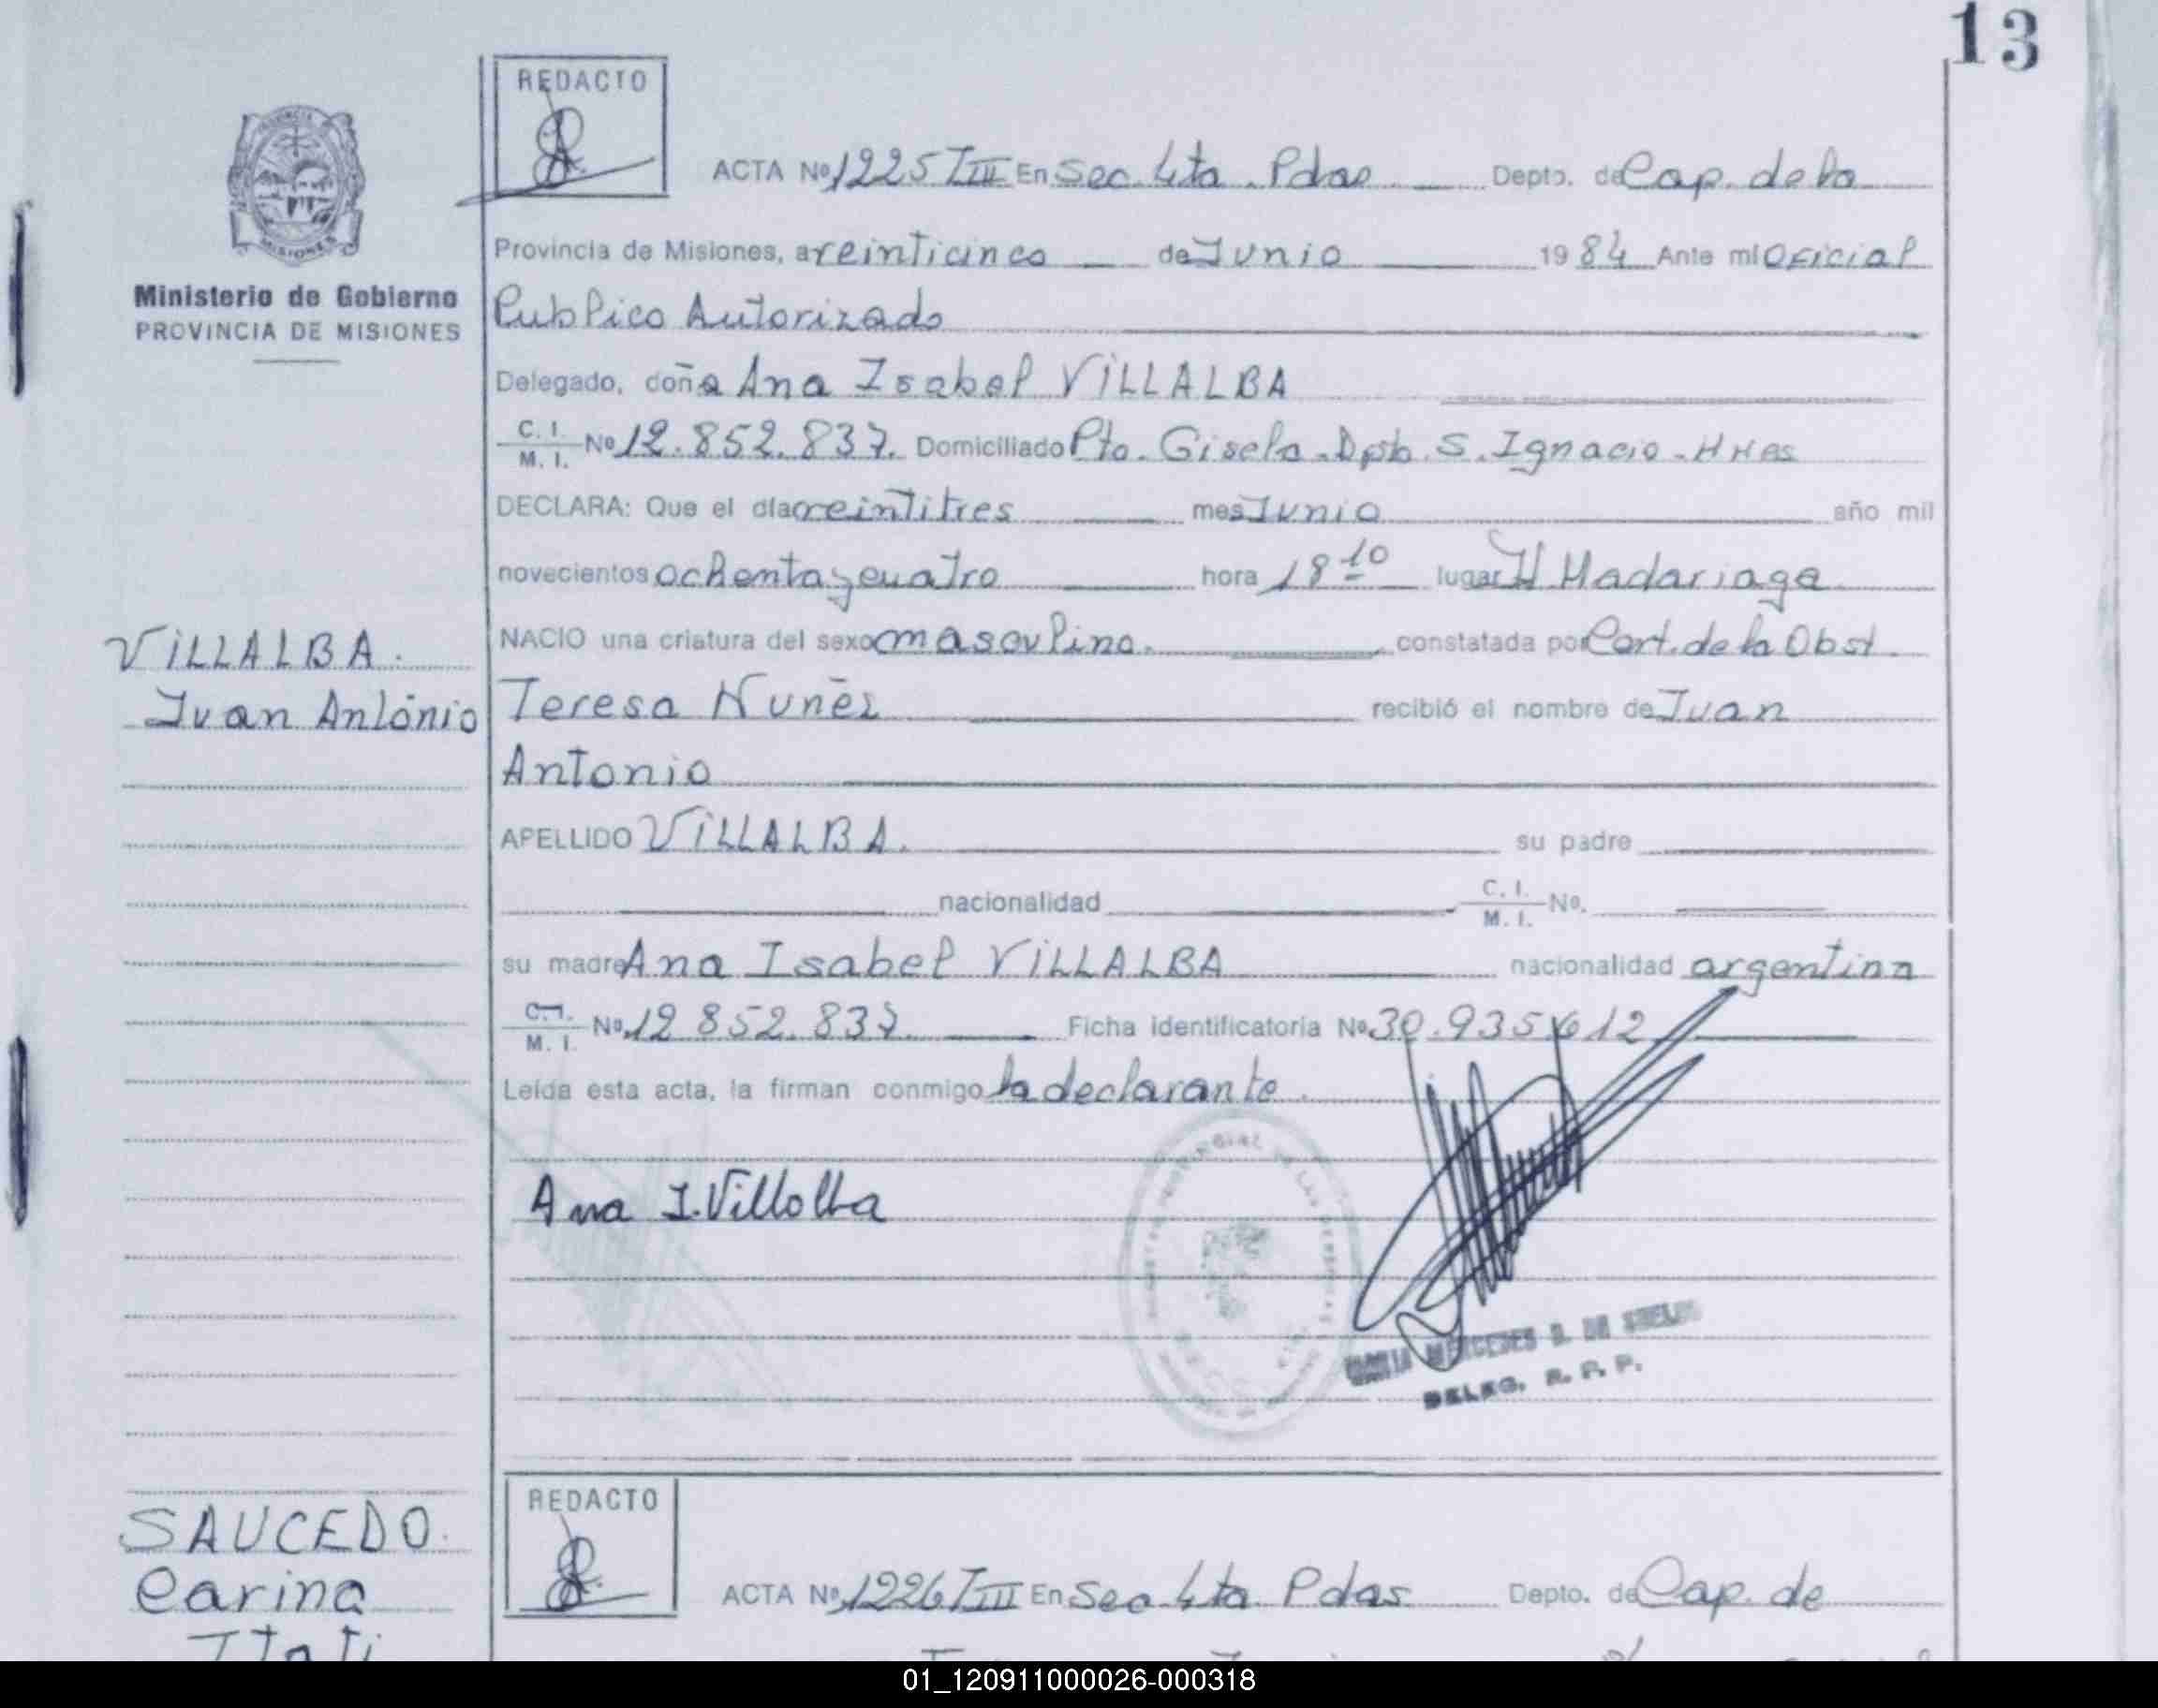 13
REDACTO
ACTA Nº 1225 TIII En Sec. 4ta. Pdas Depto. de Cap. de la
Provincia de Misiones, a veinticinco de Junio 1984 Ante mi Oficial
Ministerio de Gobierno
PROVINCIA DE MISIONES
Publico Autorizado
Delegado, doña Ana Isabel VILLALBA
C. I. M. I. Nº 12.852.837. Domiciliado Pto. Gisela. Dpto. S. Ignacio.
DECLARA: Que el día veintitres mes Junio año mil
novecientos ochenta y cuatro hora 18 10 lugar H Madariaga
NACIO una criatura del sexo masculino. constatada por Cert. de la Obst.
VILLALBA.
Juan Antonio
Teresa Nuñez recibió el nombre de Juan
Antonio
APELLIDO VILLALBA. su padre
nacionalidad C. I. M. I. Nº.
su madre Ana Isabel VILLALBA nacionalidad argentina
C. I. M. I. Nº 12 852.837. Ficha identificatoria Nº 30.935.612
Leída esta acta, la firman conmigo la declarante.
Ana I. Villalba
MARIA MERCEDES
DELEG. R. P. P.
SAUCEDO.
Carina
Itati
REDACTO
ACTA Nº 1226 TIII En Sec 4ta Pdas Depto. de Cap. de
01_120911000026-000318